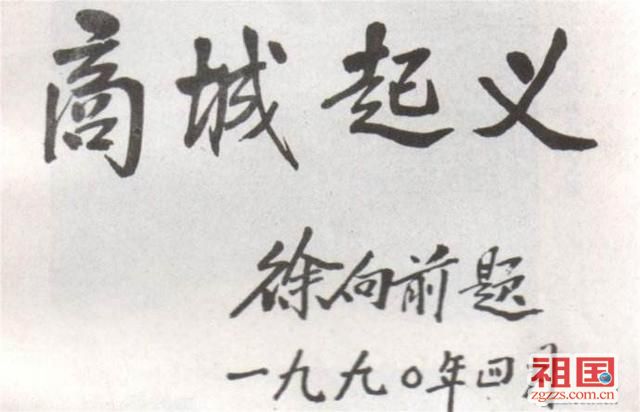 商城起义
徐向前题
一九九〇年四
祖国
zgzzs.com.cn